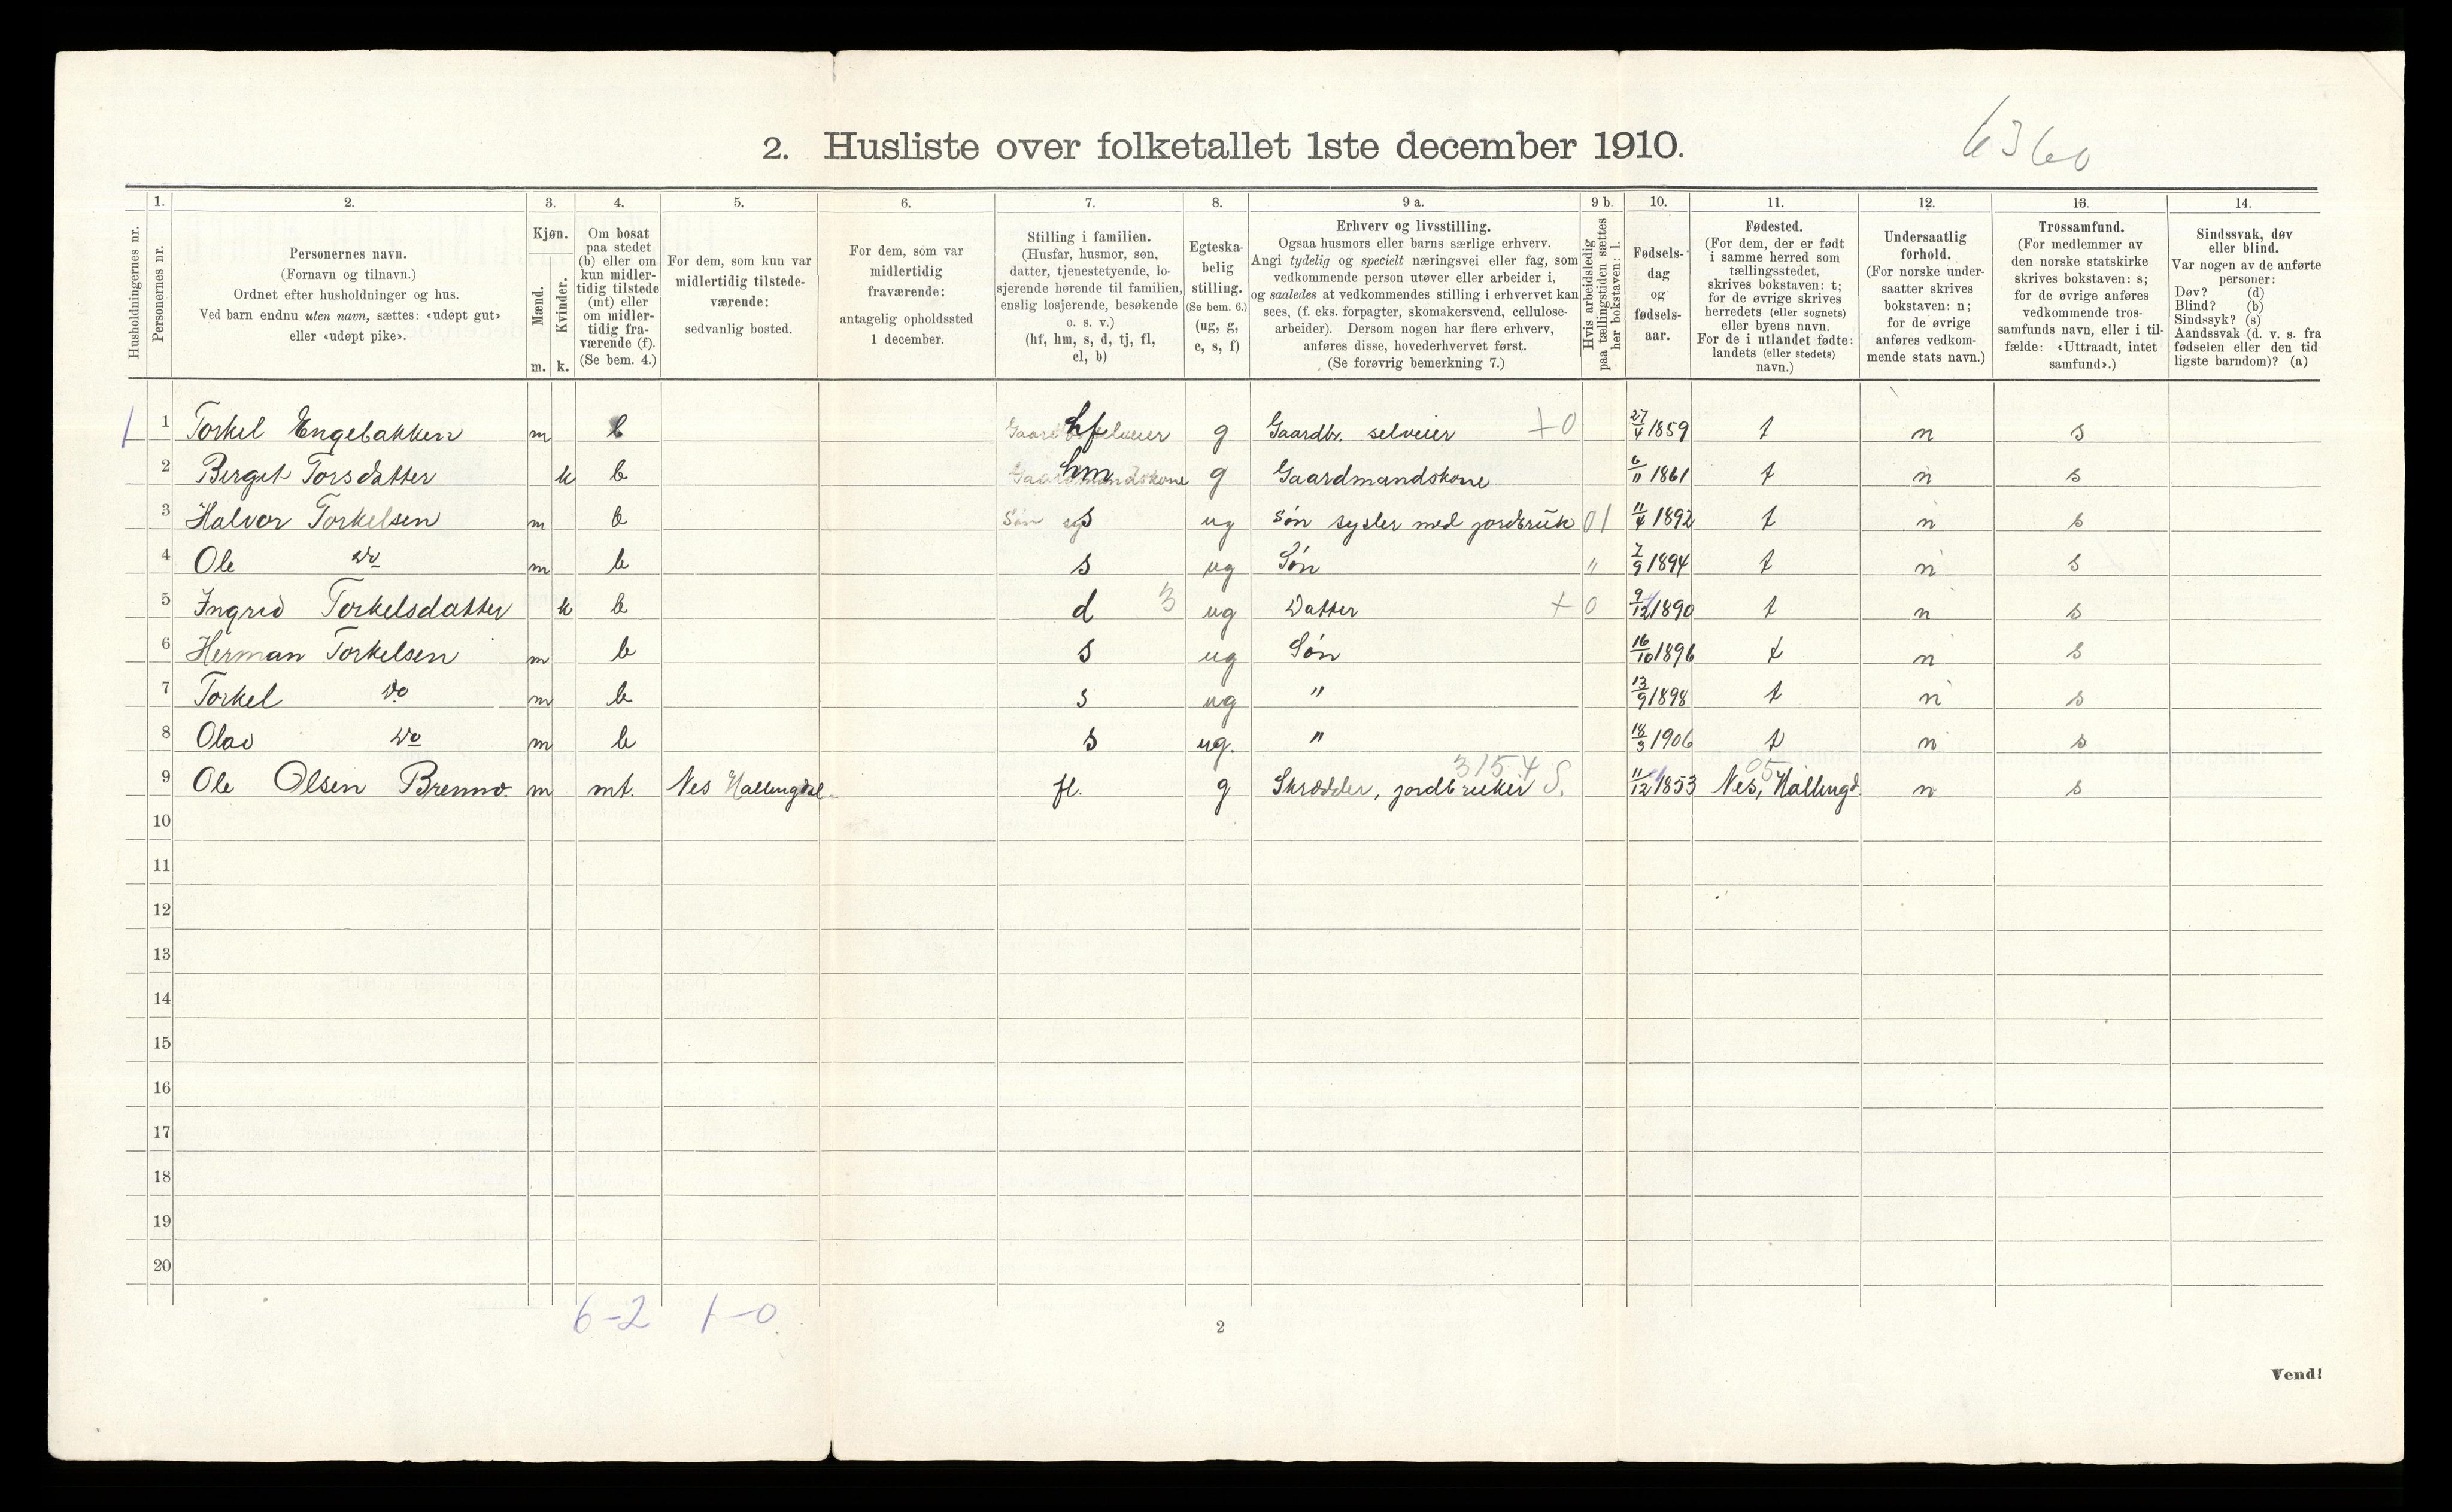 2. Husliste over folketallet 1ste december 1910.
6360
1. 2. 3. 4. 5. 6. 7. 8. 9 a. 9 b. 10. 11. 12. 13. 14.
Husholdningernes nr.
Personernes nr.
Personernes navn.
(Fornavn og tilnavn.)
Ordnet efter husholdninger og hus.
Ved barn endnu uten navn, sættes: «udøpt gut»
eller «udøpt pike».
Kjøn.
Mænd.
Kvinder.
m. k.
Om bosat
paa stedet
(b) eller om
kun midler-
tidig tilstede
(mt) eller
om midler-
tidig fra-
værende (f).
(Se bem. 4.)
For dem, som kun var
midlertidig tilstede-
værende:
sedvanlig bosted.
For dem, som var
midlertidig
fraværende:
antagelig opholdssted
1 december.
Stilling i familien.
(Husfar, husmor, søn,
datter, tjenestetyende, lo-
sjerende hørende til familien,
enslig losjerende, besøkende
o. s. v.)
(hf, hm, s, d, tj, fl,
el, b)
Egteska-
belig
stilling.
(Se bem. 6.)
(ug, g,
e, s, f)
Erhverv og livsstilling.
Ogsaa husmors eller barns særlige erhverv.
Angi tydelig og specielt næringsvei eller fag, som
vedkommende person utøver eller arbeider i,
og saaledes at vedkommendes stilling i erhvervet kan
sees, (f. eks. forpagter, skomakersvend, cellulose-
arbeider). Dersom nogen har flere erhverv,
anføres disse, hovederhvervet først.
(Se forøvrig bemerkning 7.)
Hvis arbeidsledig
paa tællingstiden sættes
her bokstaven: l.
Fødsels-
dag
og
fødsels-
aar.
Fødested.
(For dem, der er født
i samme herred som
tællingsstedet,
skrives bokstaven: t;
for de øvrige skrives
herredets (eller sognets)
eller byens navn.
For de i utlandet fødte:
landets (eller stedets)
navn.)
Undersaatlig
forhold.
(For norske under-
saatter skrives
bokstaven: n;
for de øvrige
anføres vedkom-
mende stats navn.)
Trossamfund.
(For medlemmer av
den norske statskirke
skrives bokstaven: s;
for de øvrige anføres
vedkommende tros-
samfunds navn, eller i til-
fælde: «Uttraadt, intet
samfund».)
Sindssvak, døv
eller blind.
Var nogen av de anførte
personer:
Døv? (d)
Blind? (b)
Sindssyk? (s)
Aandssvak (d. v. s. fra
fødselen eller den tid
ligste barndom)? (a)
1 1 Torkel Engebakken m b hf g Gaardbr. selveier +0 27/4 1859 t n s
2 Birgit Torsdatter k b Gaardmandskone hm g Gaardmandskone 6/11 1861 t n s
3 Halvor Torkelsen m b Søn s ug Søn sysler med jordbruk 01 11/4 1892 t n s
4 Ole do m b s ug Søn " 7/9 1894 t n s
5 Ingrid Torkelsdatter k b d 3 ug Datter + 0 9/12 1890 t n s
6 Herman Torkelsen m b s ug Søn 16/10 1896 t n s
7 Torkel do m b s ug " 13/9 1898 t n s
8 Olav do m b s ug. " 18/3 1906 t n s
3154 05
9 Ole Olsen Brenno. m mt. Nes Hallingdal fl. g Skrædder, jordbruker S. 11/12 1853 Nes, Hallingd. n s
10
11
12
13
14
15
16
17
18
19
20
6-2 1-0
2
Vend!